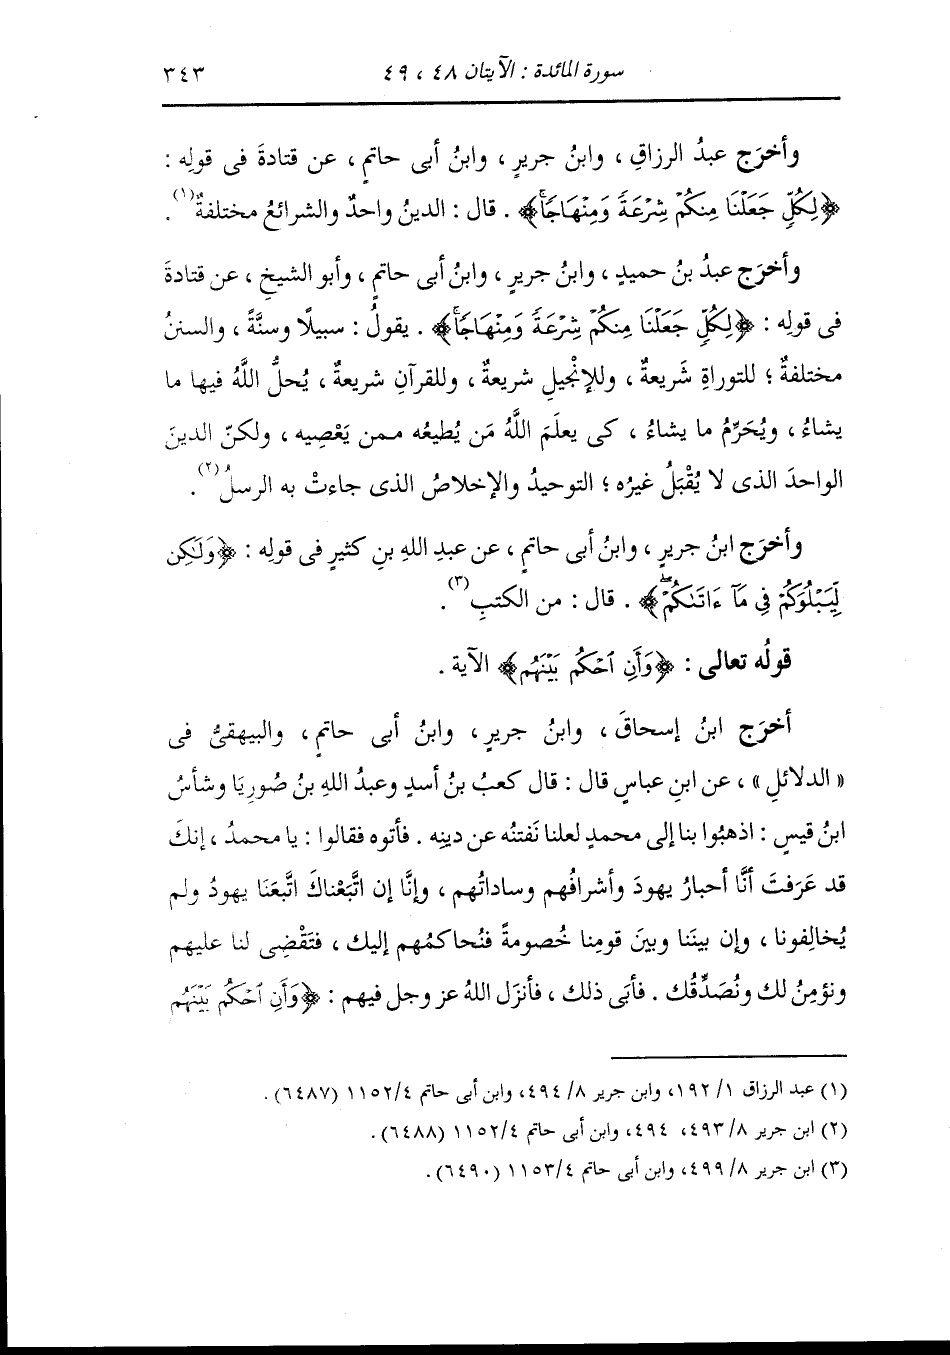 سورة المائدة : الآيتان ٤٨ ، ٤٩ ٣٤٣
وأخرَج عبدُ الرزاقِ ، وابنُ جريرٍ ، وابنُ أبى حاتمٍ ، عن قتادةَ فى قولِه :
﴿لِكُلٍّ جَعَلْنَا مِنكُمْ شِرْعَةً وَمِنْهَاجًاۚ﴾ . قال : الدينُ واحدٌ والشرائعُ مختلفةٌ(١) .
وأخرَج عبدُ بنُ حميدٍ ، وابنُ جريرٍ ، وابنُ أبى حاتمٍ ، وأبو الشيخِ ، عن قتادةَ
فى قولِه : ﴿لِكُلٍّ جَعَلْنَا مِنكُمْ شِرْعَةً وَمِنْهَاجًاۚ﴾ . يقولُ : سبيلًا وسنَّةً ، والسننُ
مختلفةٌ ؛ للتوراةِ شَريعةٌ ، وللإنْجيلِ شريعةٌ ، وللقرآنِ شريعةٌ ، يُحلُّ اللَّهُ فيها ما
يشاءُ ، ويُحَرِّمُ ما يشاءُ ، كى يعلَمَ اللَّهُ مَن يُطيعُه ممن يَعْصِيه ، ولكنّ الدينَ
الواحدَ الذى لا يُقْبَلُ غيرُه ؛ التوحيدُ والإخلاصُ الذى جاءتْ به الرسلُ(٢) .
وأخرَج ابنُ جريرٍ ، وابنُ أبى حاتمٍ ، عن عبدِ اللهِ بنِ كثيرٍ فى قولِه : ﴿وَلَٰكِن
لِّيَبْلُوَكُمْ فِى مَآ ءَاتَىٰكُمْۖ﴾ . قال : من الكتبِ(٣) .
قولُه تعالى : ﴿وَأَنِ ٱحْكُم بَيْنَهُم﴾ الآية .
أخرَج ابنُ إسحاقَ ، وابنُ جريرٍ ، وابنُ أبى حاتمٍ ، والبيهقىُّ فى
« الدلائلِ » ، عن ابنِ عباسٍ قال : قال كعبُ بنُ أسدٍ وعبدُ اللهِ بنُ صُورِيَا وشأسُ
ابنُ قيسٍ : اذهبُوا بنا إلى محمدٍ لعلنا نَفتنُه عن دينِه . فأتوه فقالوا : يا محمدُ ، إنكَ
قد عَرَفتَ أنَّا أحبارُ يهودَ وأشرافُهم وساداتُهم ، وإنَّا إن اتَّبَعْناكَ اتَّبعَنَا يهودُ ولم
يُخالِفونا ، وإن بينَنا وبينَ قومِنا خُصومةً فنُحاكمُهم إليك ، فتَقْضِى لنا عليهم
ونؤمِنُ لك ونُصَدِّقُك . فأبَى ذلك ، فأنزَل اللهُ عز وجل فيهم : ﴿وَأَنِ ٱحْكُم بَيْنَهُم
(١) عبد الرزاق ١/ ١٩٢، وابن جرير ٨/ ٤٩٤، وابن أبى حاتم ٤/ ١١٥٢ (٦٤٨٧).
(٢) ابن جرير ٨/ ٤٩٣، ٤٩٤، وابن أبى حاتم ٤/ ١١٥٢ (٦٤٨٨).
(٣) ابن جرير ٨/ ٤٩٩، وابن أبى حاتم ٤/ ١١٥٣ (٦٤٩٠).